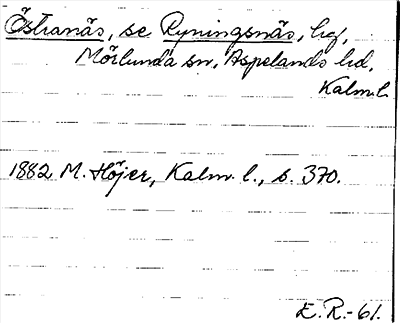 Östranäs, se Ryningsnäs, hg,
Mörlunda sn, Aspelands hd,
Kalm. l.
1882 M. Höjer, Kalm. l., s. 370.
E. R. - 61.